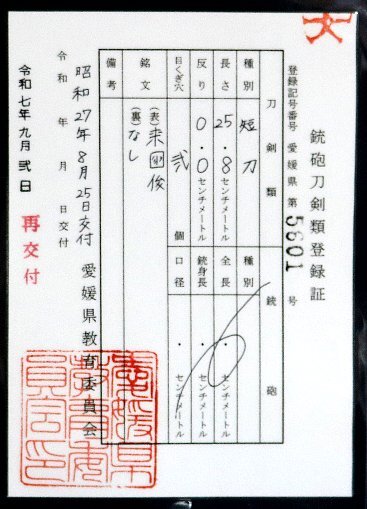 銃砲刀剣類登録証
登録記号番号 愛媛県 第 5601 号
刀剣類
種別 短刀
長さ 25.8センチメートル
反り 0.0センチメートル
目くぎ穴 弐 個
銃砲
種別
全長 . センチメートル
銃身長 . センチメートル
口径 . センチメートル
銘文 (表) 来国俊
(裏) なし
備考
昭和27年8月25日交付
令和 年 月 日交付
愛媛県教育委員会
令和七年九月弐日 再交付
愛媛県
教育委
員会印